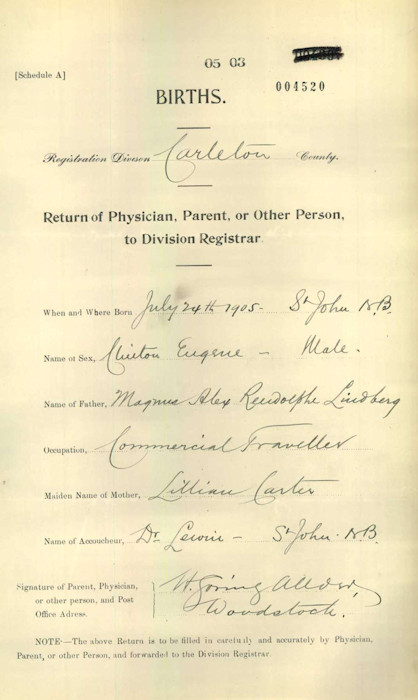 05 03
[Schedule A]
004520
BIRTHS.
Registration Divison Carleton County.
Return of Physician, Parent, or Other Person,
to Division Registrar.
When and Where Born July 24th 1905. St John N.B.
Name of Sex, Clinton Eugene - Male.
Name of Father, Magnus Alex Reudolphe Lindberg
Occupation, Commercial Traveller
Maiden Name of Mother, Lillian Carter
Name of Accoucheur, Dr. Lewin - St John. N.B.
Signature of Parent, Physician,
or other person, and Post
Office Adress.
Woodstock.
NOTE—The above Return is to be filled in carefully and accurately by Physician,
Parent, or other Person, and forwarded to the Division Registrar.